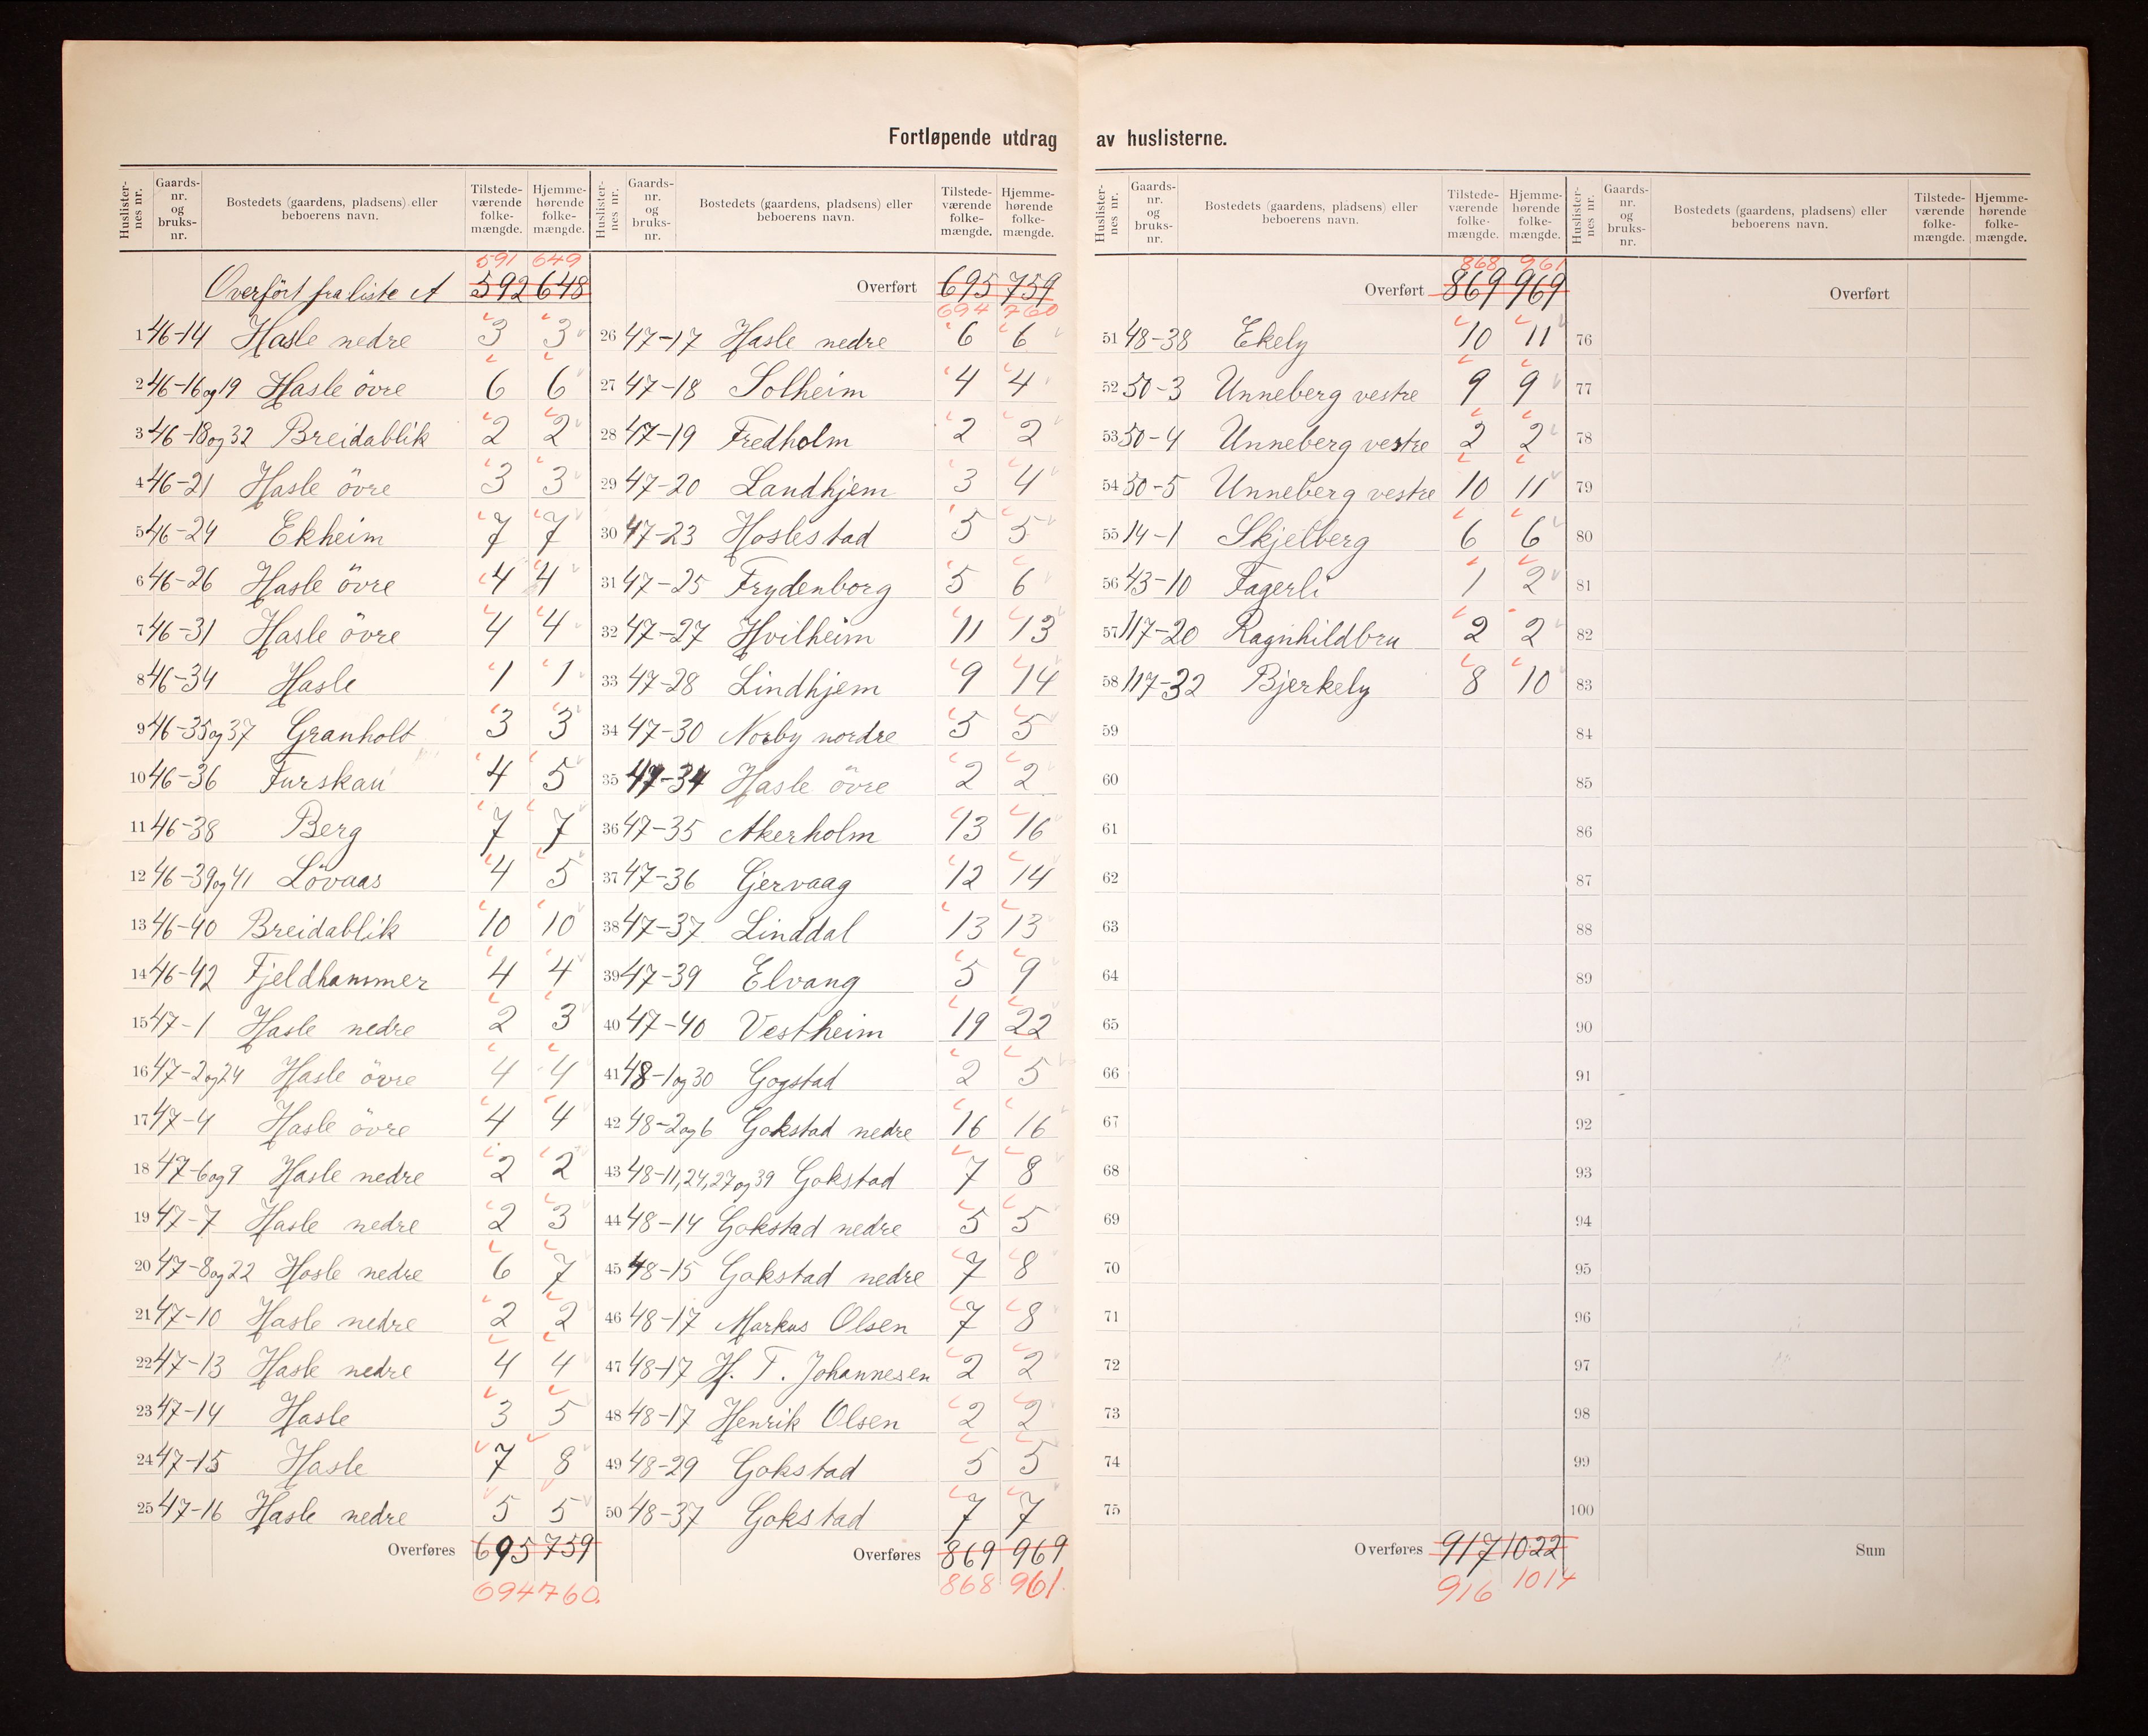 Fortløpende utdrag av huslisterne.
Huslister-nes nr. Gaards-nr. og bruks-nr. Bostedets (gaardens, pladsens) eller beboerens navn. Tilstede-værende folke-mængde. Hjemme-hørende folke-mængde.
591 649
Overført fra liste A 592 648
1 46-14 Hasle nedre 3 3
2 46-16og19 Hasle övre 6 6
3 46-18og32 Breidablik 2 2
4 46-21 Hasle övre 3 3
5 46-24 Ekheim 7 7
6 46-26 Hasle övre 4 4
7 46-31 Hasle övre 4 4
8 46-34 Hasle 1 1
9 46-35og37 Granholt 3 3
10 46-36 Furskau 4 5
11 46-38 Berg 7 7
12 46-39og41 Lövaas 4 5
13 46-40 Breidablik 10 10
14 46-42 Fjeldhammer 4 4
15 47-1 Hasle nedre 2 3
16 47-2og24 Hasle övre 4 4
17 47-4 Hasle övre 4 4
18 47-6og9 Hasle nedre 2 2
19 47-7 Hasle nedre 2 3
20 47-8og22 Hasle nedre 6 7
21 47-10 Hasle nedre 2 2
22 47-13 Hasle nedre 4 4
23 47-14 Hasle 3 5
24 47-15 Hasle 7 8
25 47-16 Hasle nedre 5 5
Overføres 695 759
694 760.
Huslister-nes nr. Gaards-nr. og bruks-nr. Bostedets (gaardens, pladsens) eller beboerens navn. Tilstede-værende folke-mængde. Hjemme-hørende folke-mængde.
Overført 695 759
694 760
26 47-17 Hasle nedre 6 6
27 47-18 Solheim 4 4
28 47-19 Fredholm 2 2
29 47-20 Landhjem 3 4
30 47-23 Haslestad 5 5
31 47-25 Frydenborg 5 6
32 47-27 Hvilheim 11 13
33 47-28 Lindhjem 9 14
34 47-30 Norby nordre 5 5
35 47-34 Hasle övre 2 2
36 47-35 Akerholm 13 16
37 47-36 Gjervaag 12 14
38 47-37 Linddal 13 13
39 47-39 Elvang 5 9
40 47-40 Vestheim 19 22
41 48-1og30 Gogstad 2 5
42 48-2og6 Gokstad nedre 16 16
43 48-11,24,27og39 Gokstad 7 8
44 48-14 Gokstad nedre 5 5
45 48-15 Gokstad nedre 7 8
46 48-17 Markus Olsen 7 8
47 48-17 H. T. Johannesen 2 2
48 48-17 Henrik Olsen 2 2
49 48-29 Gokstad 5 5
50 48-37 Gokstad 7 7
Overføres 869 969
868 961.
Huslister-nes nr. Gaards-nr. og bruks-nr. Bostedets (gaardens, pladsens) eller beboerens navn. Tilstede-værende folke-mængde. Hjemme-hørende folke-mængde.
868 961
Overført 869 969
51 48-38 Ekely 10 11
52 50-3 Unneberg vestre 9 9
53 50-4 Unneberg vestre 2 2
54 50-5 Unneberg vestre 10 11
55 14-1 Skjelberg 6 6
56 43-10 Fagerli 1 2
57 117-20 Ragnhildbru 2 2
58 117-32 Bjerkely 8 10
59
60
61
62
63
64
65
66
67
68
69
70
71
72
73
74
75
Overføres 917 1022
916 1014
Huslister-nes nr. Gaards-nr. og bruks-nr. Bostedets (gaardens, pladsens) eller beboerens navn. Tilstede-værende folke-mængde. Hjemme-hørende folke-mængde.
Overført
76
77
78
79
80
81
82
83
84
85
86
87
88
89
90
91
92
93
94
95
96
97
98
99
100
Sum